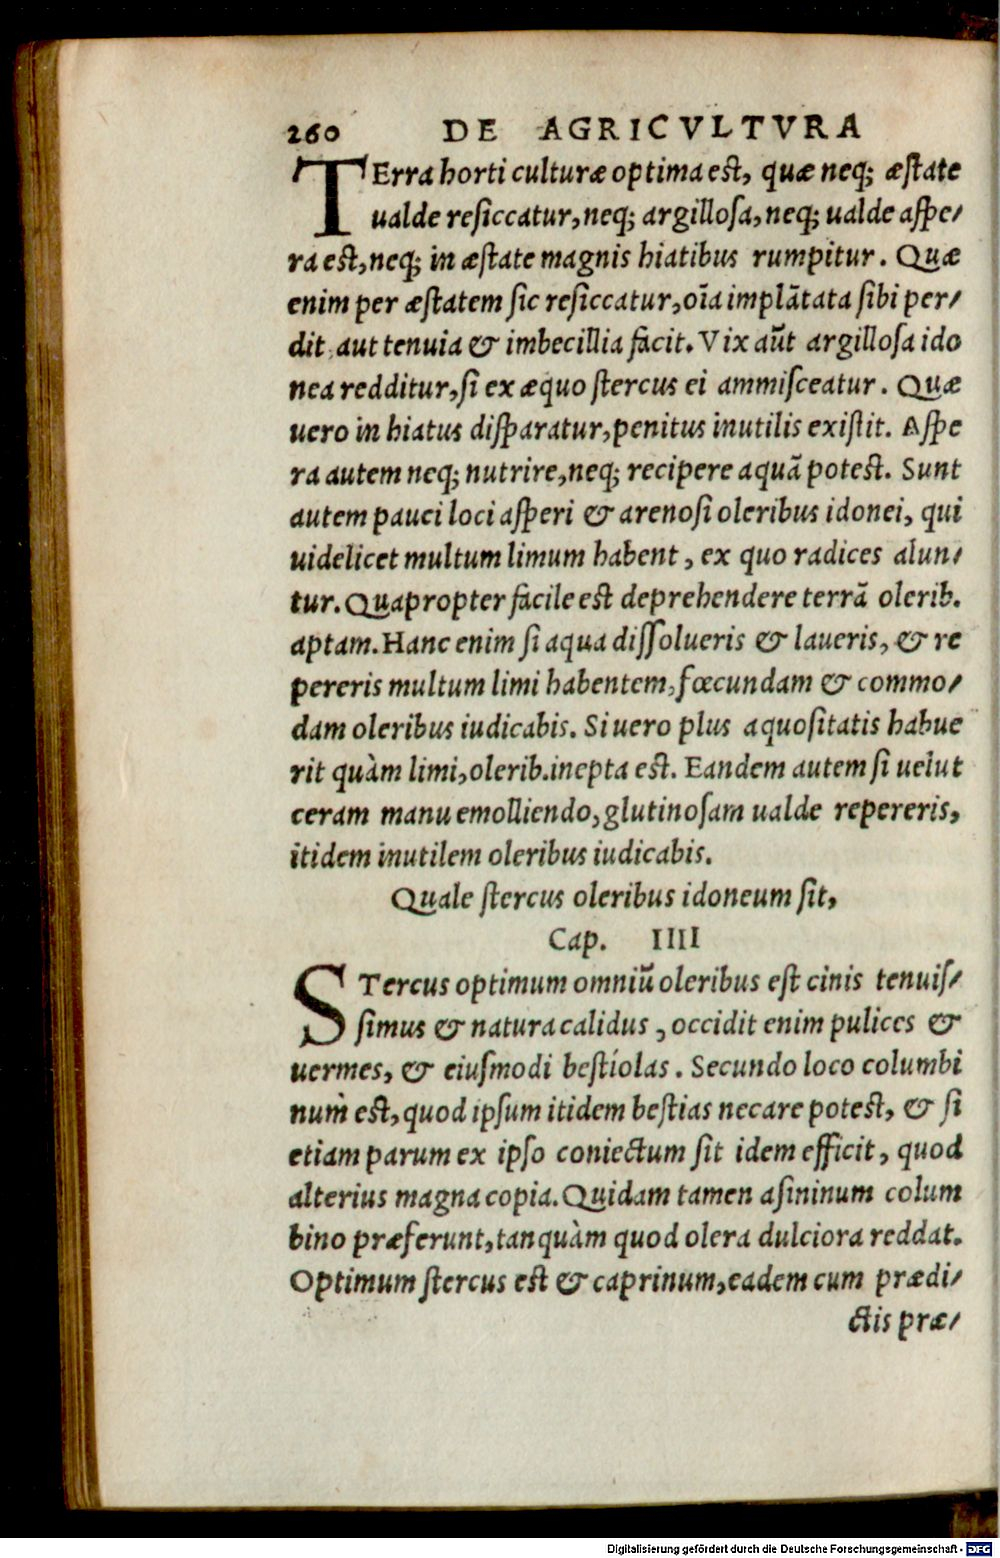 260 DE AGRICVLTVRA
TErra horti culturæ optima est, quæ neq; æstate
ualde resiccatur, neq; argillosa, neq; ualde aspe/
ra est, neq; in æstate magnis hiatibus rumpitur. Quæ
enim per æstatem sic resiccatur, oĩa implãtata sibi per/
dit, aut tenuia & imbecillia facit. Vix aũt argillosa ido
nea redditur, si ex æquo stercus ei ammisceatur. Quæ
uero in hiatus disparatur, penitus inutilis existit. Aspe
ra autem neq; nutrire, neq; recipere aquã potest. Sunt
autem pauci loci asperi & arenosi oleribus idonei, qui
uidelicet multum limum habent, ex quo radices alun/
tur. Quapropter facile est deprehendere terrã olerib.
aptam. Hanc enim si aqua dissolueris & laueris, & re
pereris multum limi habentem, fœcundam & commo/
dam oleribus iudicabis. Si uero plus aquositatis habue
rit quàm limi, olerib. inepta est. Eandem autem si uelut
ceram manu emolliendo, glutinosam ualde repereris,
itidem inutilem oleribus iudicabis.
Quale stercus oleribus idoneum sit,
Cap. IIII
STercus optimum omniũ oleribus est cinis tenuis/
simus & natura calidus, occidit enim pulices &
uermes, & eiusmodi bestiolas. Secundo loco columbi
num est, quod ipsum itidem bestias necare potest, & si
etiam parum ex ipso coniectum sit idem efficit, quod
alterius magna copia. Quidam tamen asininum colum
bino præferunt, tanquàm quod olera dulciora reddat.
Optimum stercus est & caprinum, eadem cum prædi/
ctis præ/
Digitalisierung gefördert durch die Deutsche Forschungsgemeinschaft - DFG